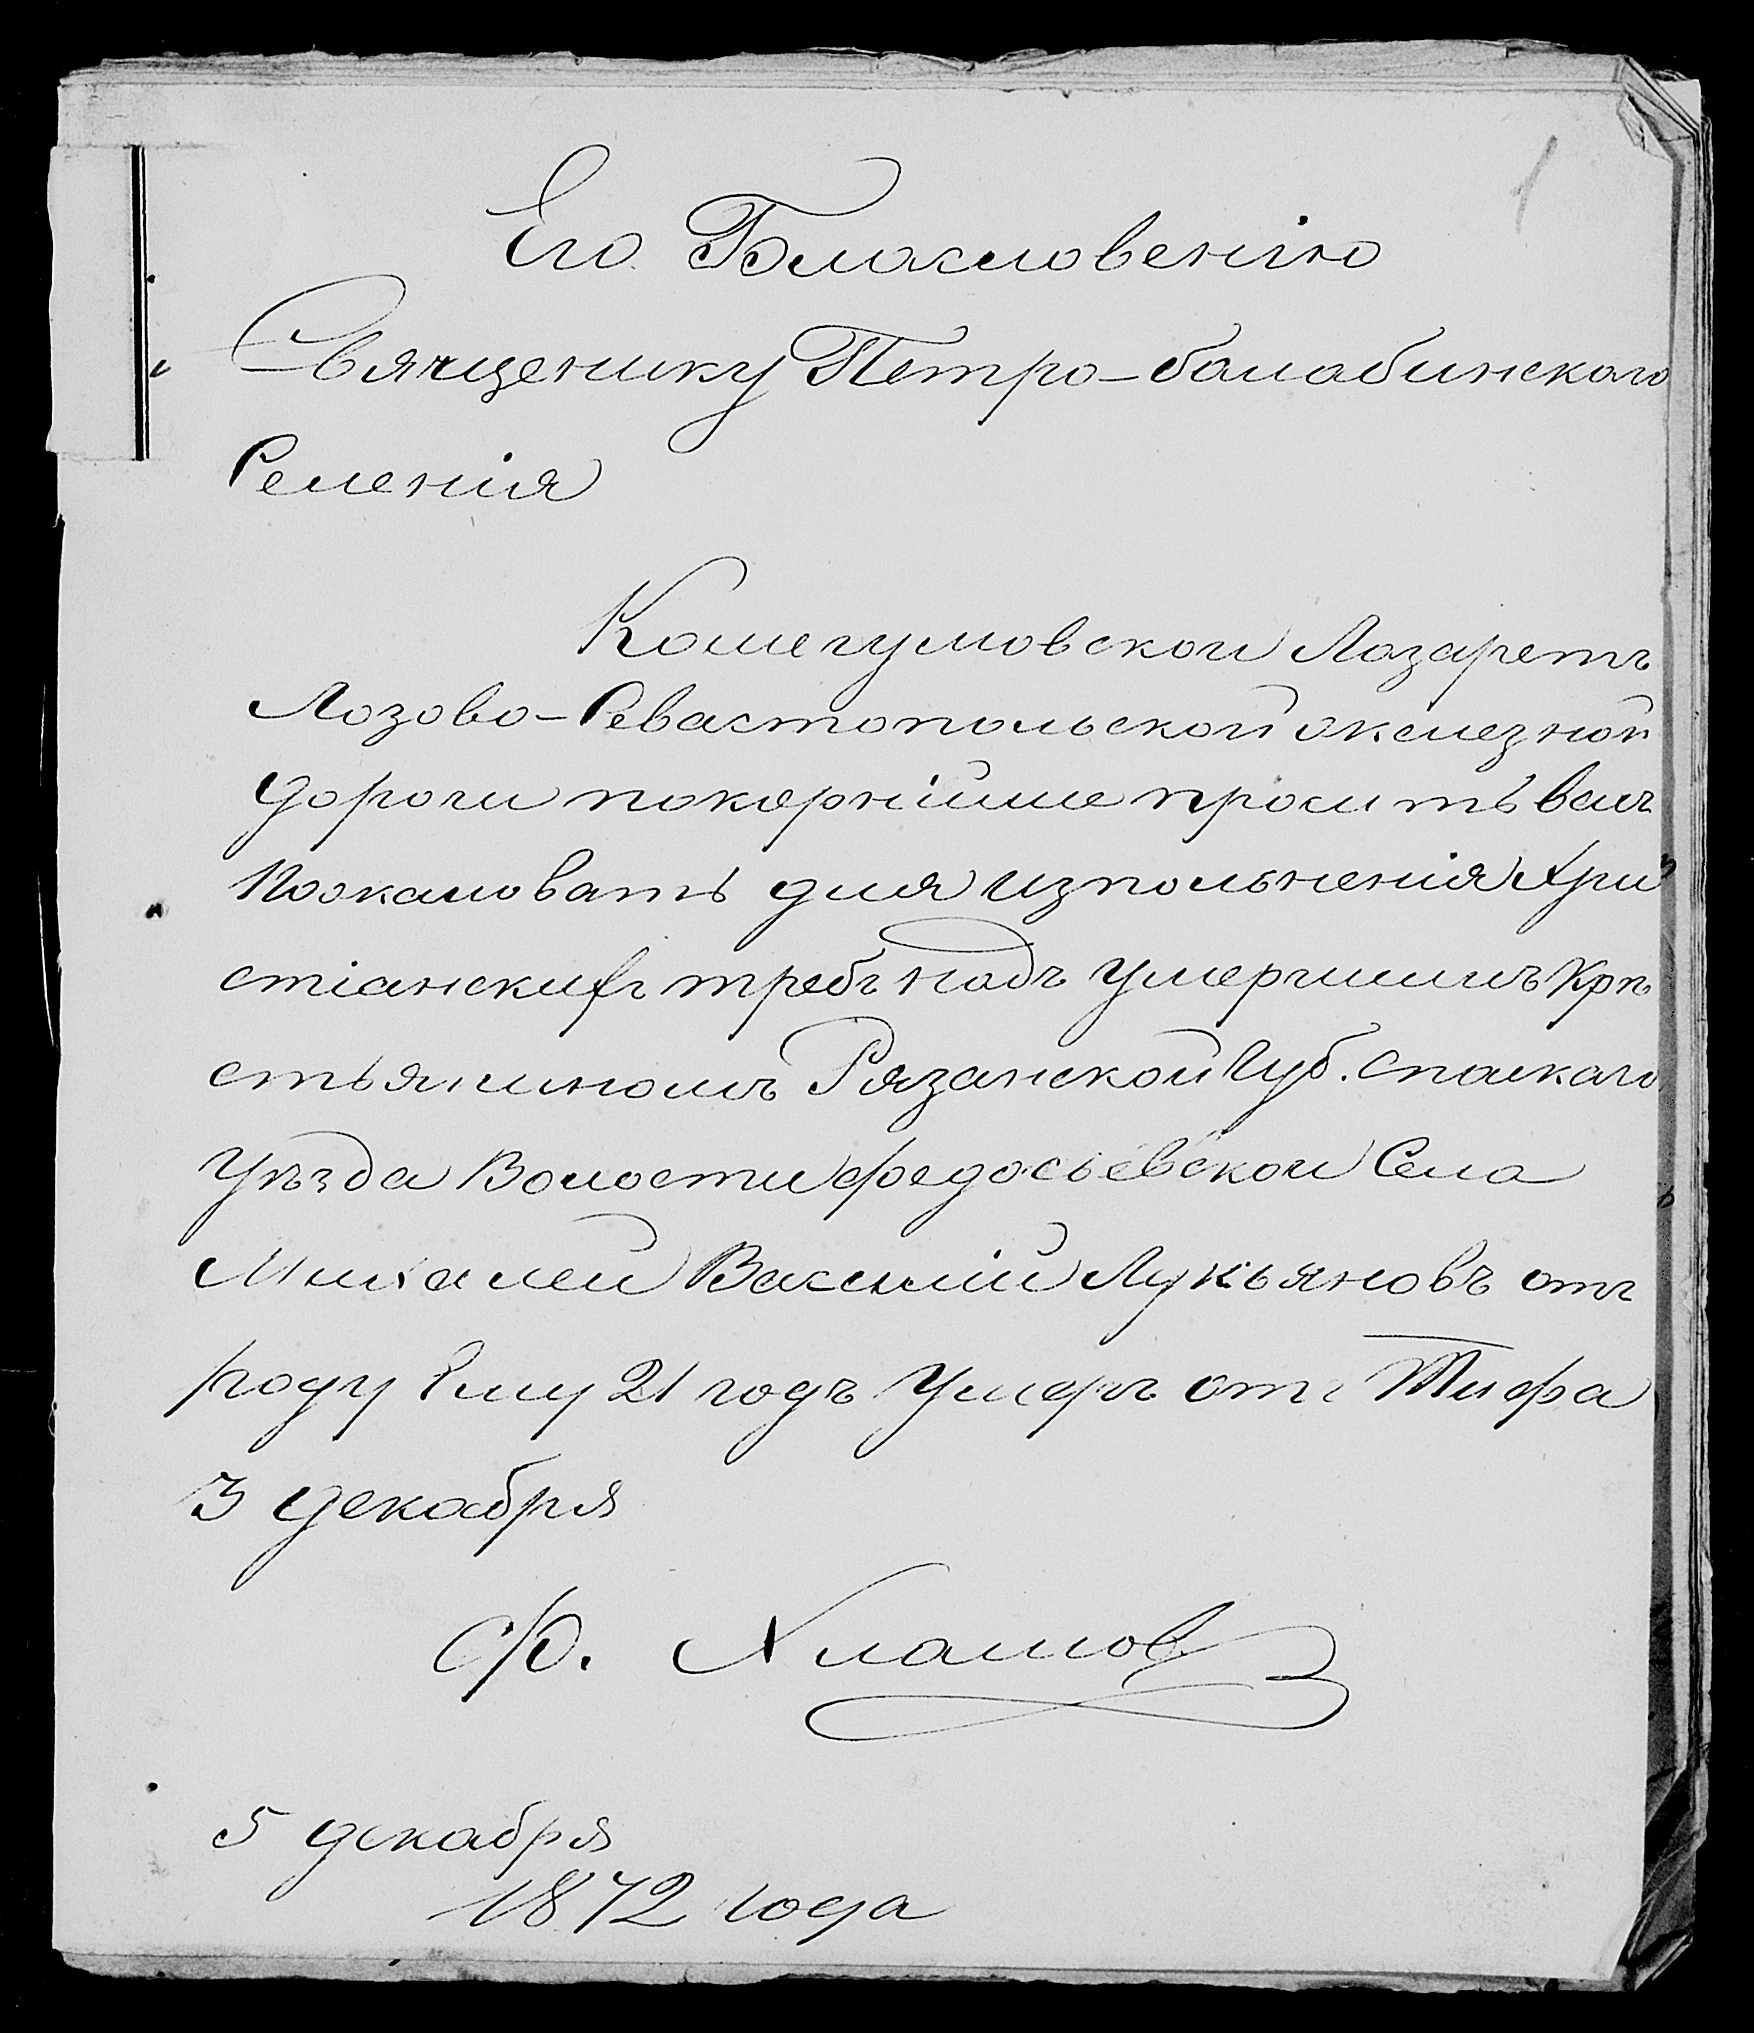 1
Его Благословенію
Священику Петро-балабинскаго
Селенія
Кошегумовской Лазаретъ
Лозово-Севастопольской железной
дороги покорнійше проситъ васъ
Пожаловать для изпольненія Хри
стіанскихъ требъ надъ умершимъ Кре
стьяниномъ Рязанской Губ. Спаскаго
Уѣзда Волости федосьевской Села
Михалей Василій Лукьяновъ отъ
роду Ему 21 годъ Умеръ отъ Тифа
3 декабря
Ф. Хламов
5 декабря
1872 года